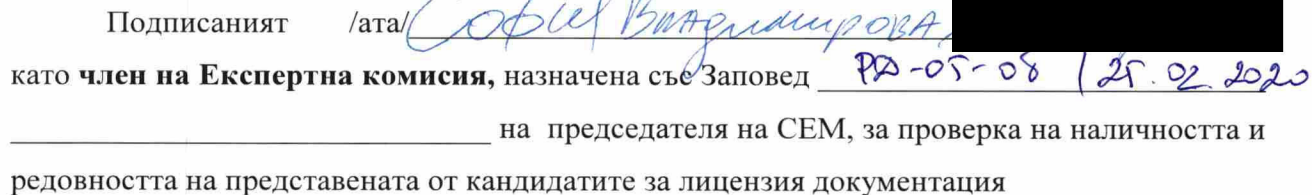 Подписаният /ата/ София Владимирова,
като член на Експертна комисия, назначена със Заповед РД-05-08 / 25.02.2020
на председателя на СЕМ, за проверка на наличността и
редовността на представената от кандидатите за лицензия документация